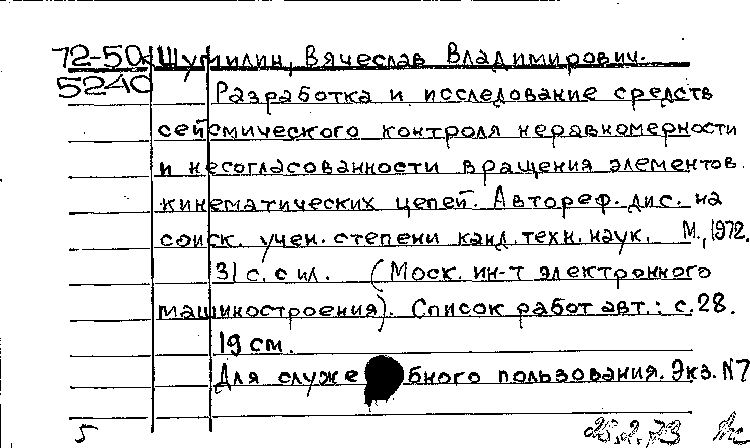 72-50к Шумилин, Вячеслав Владимирович.
5240 Разработка и исследование средств
сейсмического контроля неравномерности
и несогласованности вращения элементов
кинематических цепей. Автореф. дис. на
соиск. учен. степени канд. техн. наук. М., 1972.
31 с. с ил. (Моск. ин-т электронного
машиностроения). Список работ авт.: с. 28.
19 см.
Для служебного пользования. Экз. №7
5 26.2.73